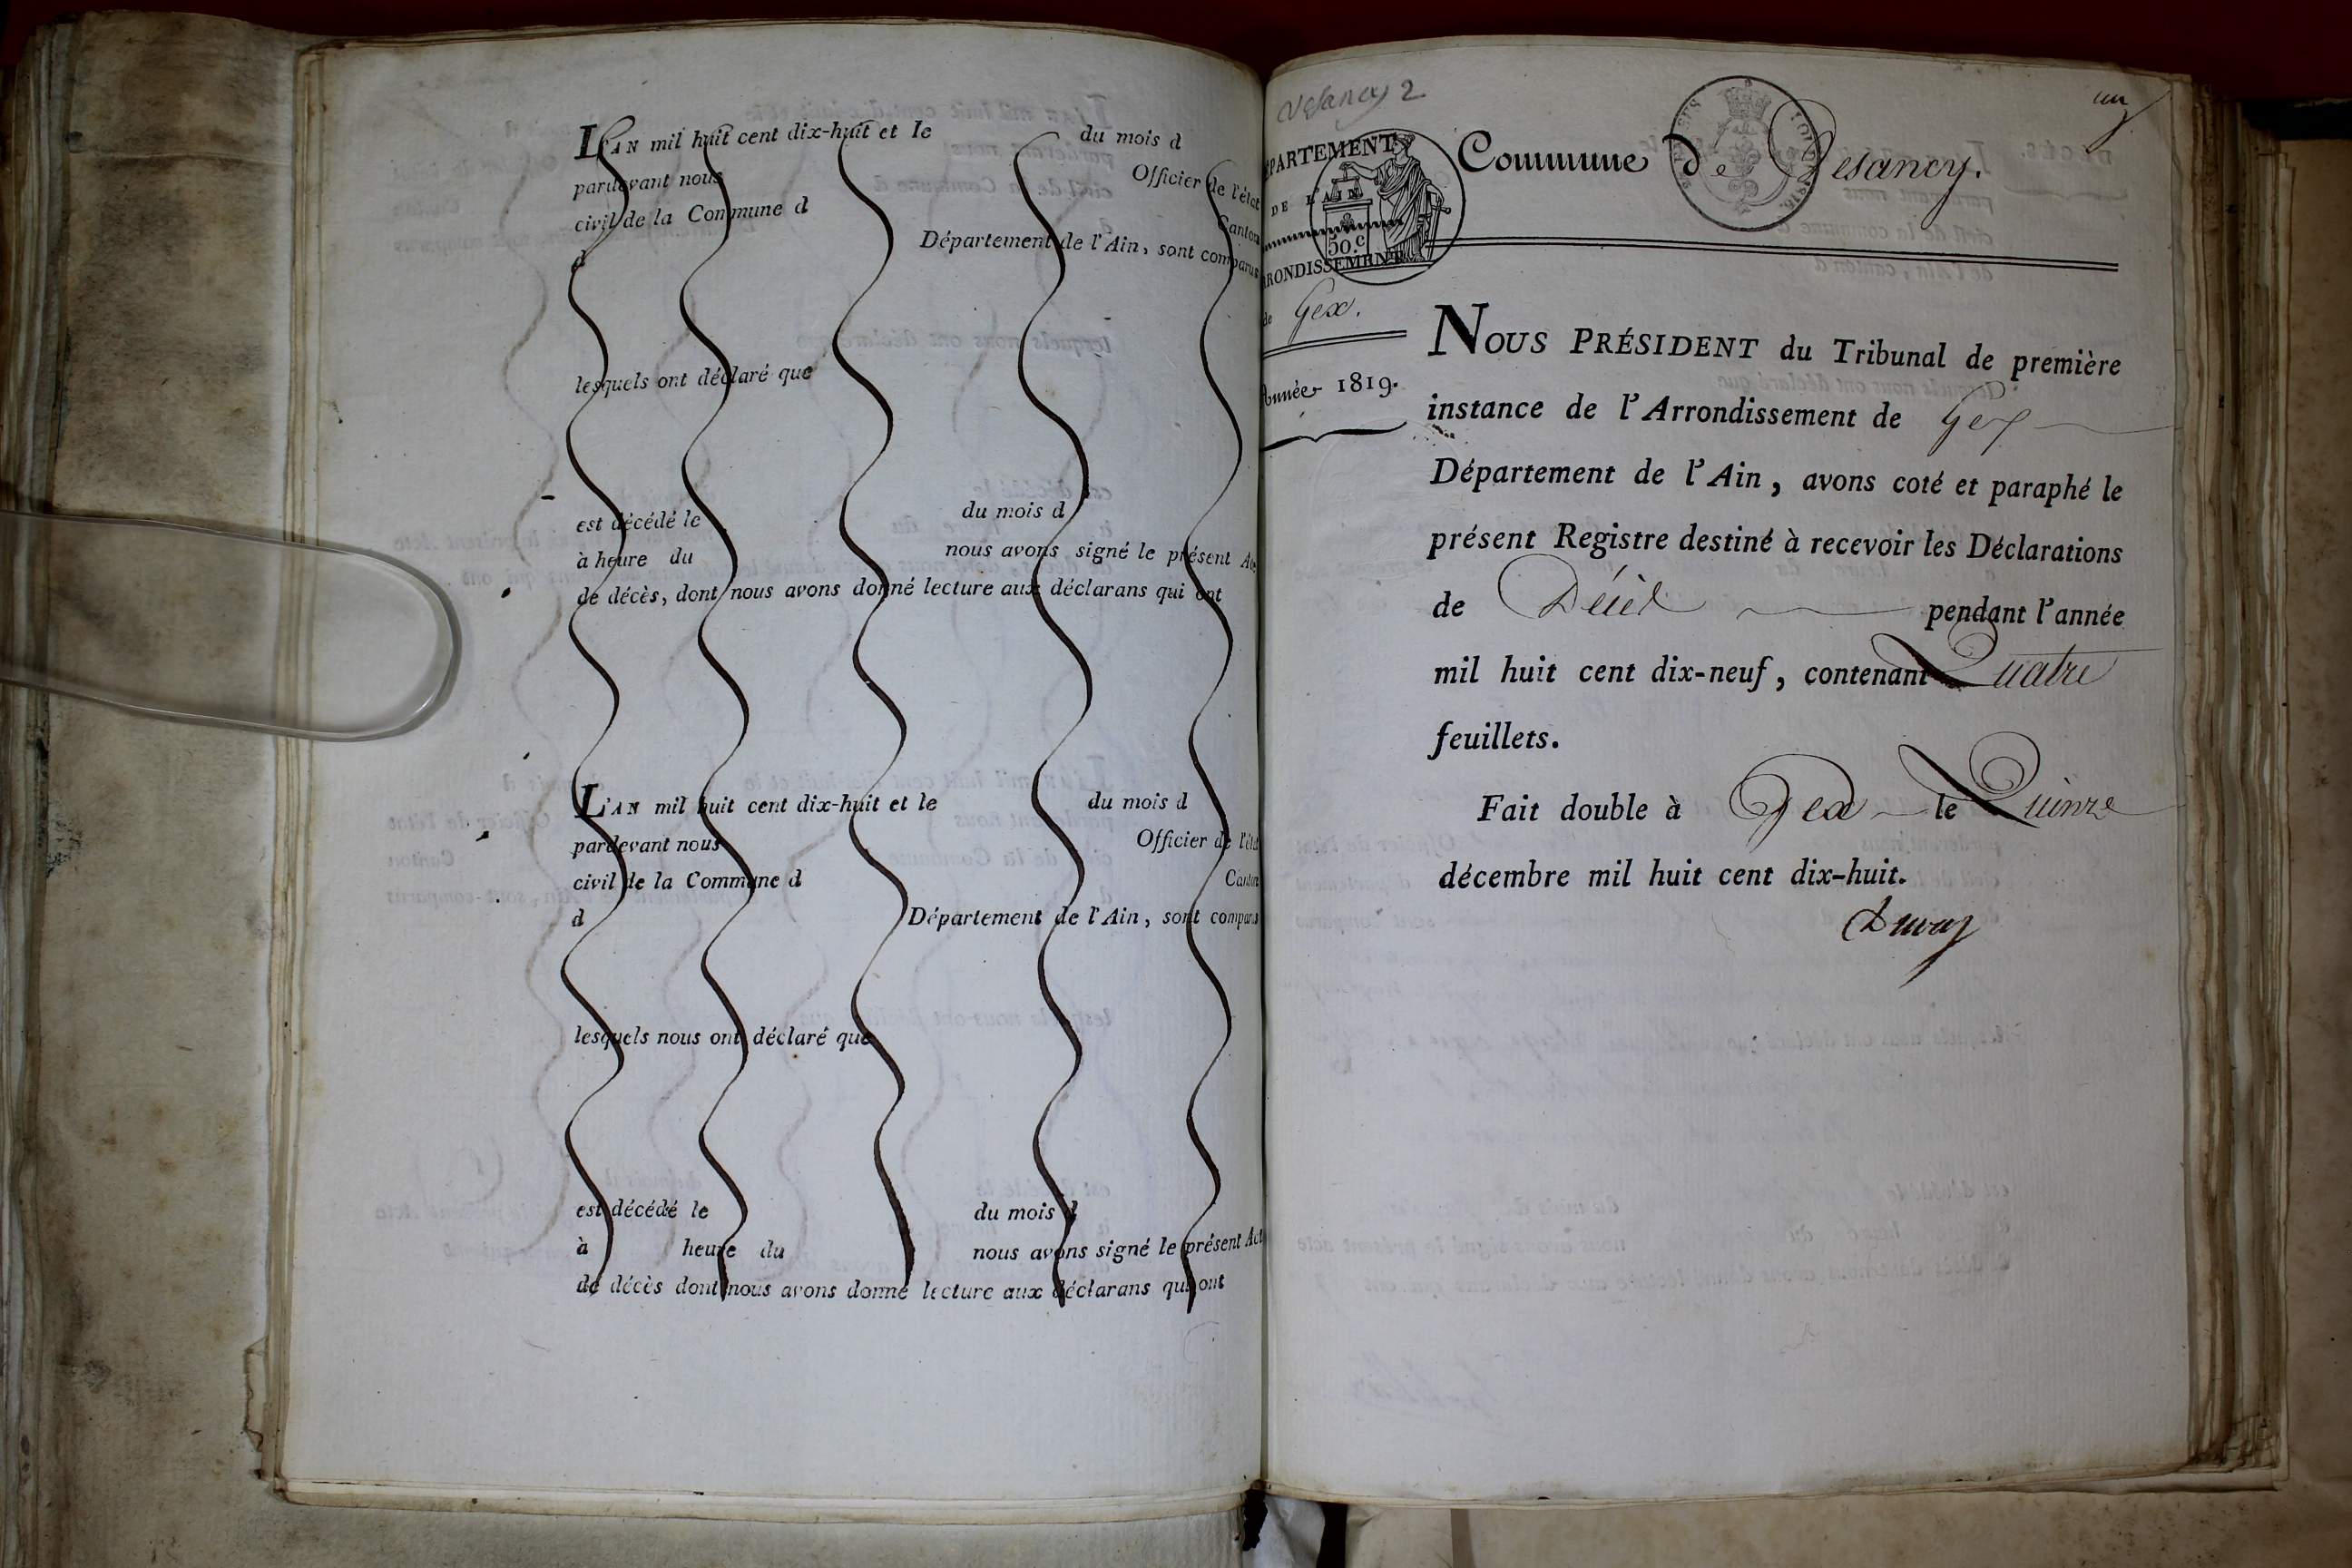 L'AN mil huit cent dix-huit et le du mois d
pardevant nous Officier de l'état
civil de la Commune d Canton
d Département de l'Ain, sont comparus
lesquels ont déclaré que
est décédé le du mois d
à heure du nous avons signé le présent Acte
de décès, dont nous avons donné lecture aux déclarans qui ont
L'AN mil huit cent dix-huit et le du mois d
pardevant nous Officier de l'état
civil de la Commune d Canton
d Département de l'Ain, sont comparus
lesquels nous ont déclaré que
est décédé le du mois d
à heure du nous avons signé le présent Act
de décès dont nous avons donné lecture aux déclarans qui ont
Vesancy 2
un
DÉPARTEMENT
DE L'AIN
50.c
ARRONDISSEMENT
de Gex.
Année 1819.
Commune de Vesancy.
NOUS PRÉSIDENT du Tribunal de première
instance de l'Arrondissement de Gex
Département de l'Ain, avons coté et paraphé le
présent Registre destiné à recevoir les Déclarations
de Décès pendant l'année
mil huit cent dix-neuf, contenant Quatre
feuillets.
Fait double à Gex le Quinze
décembre mil huit cent dix-huit.